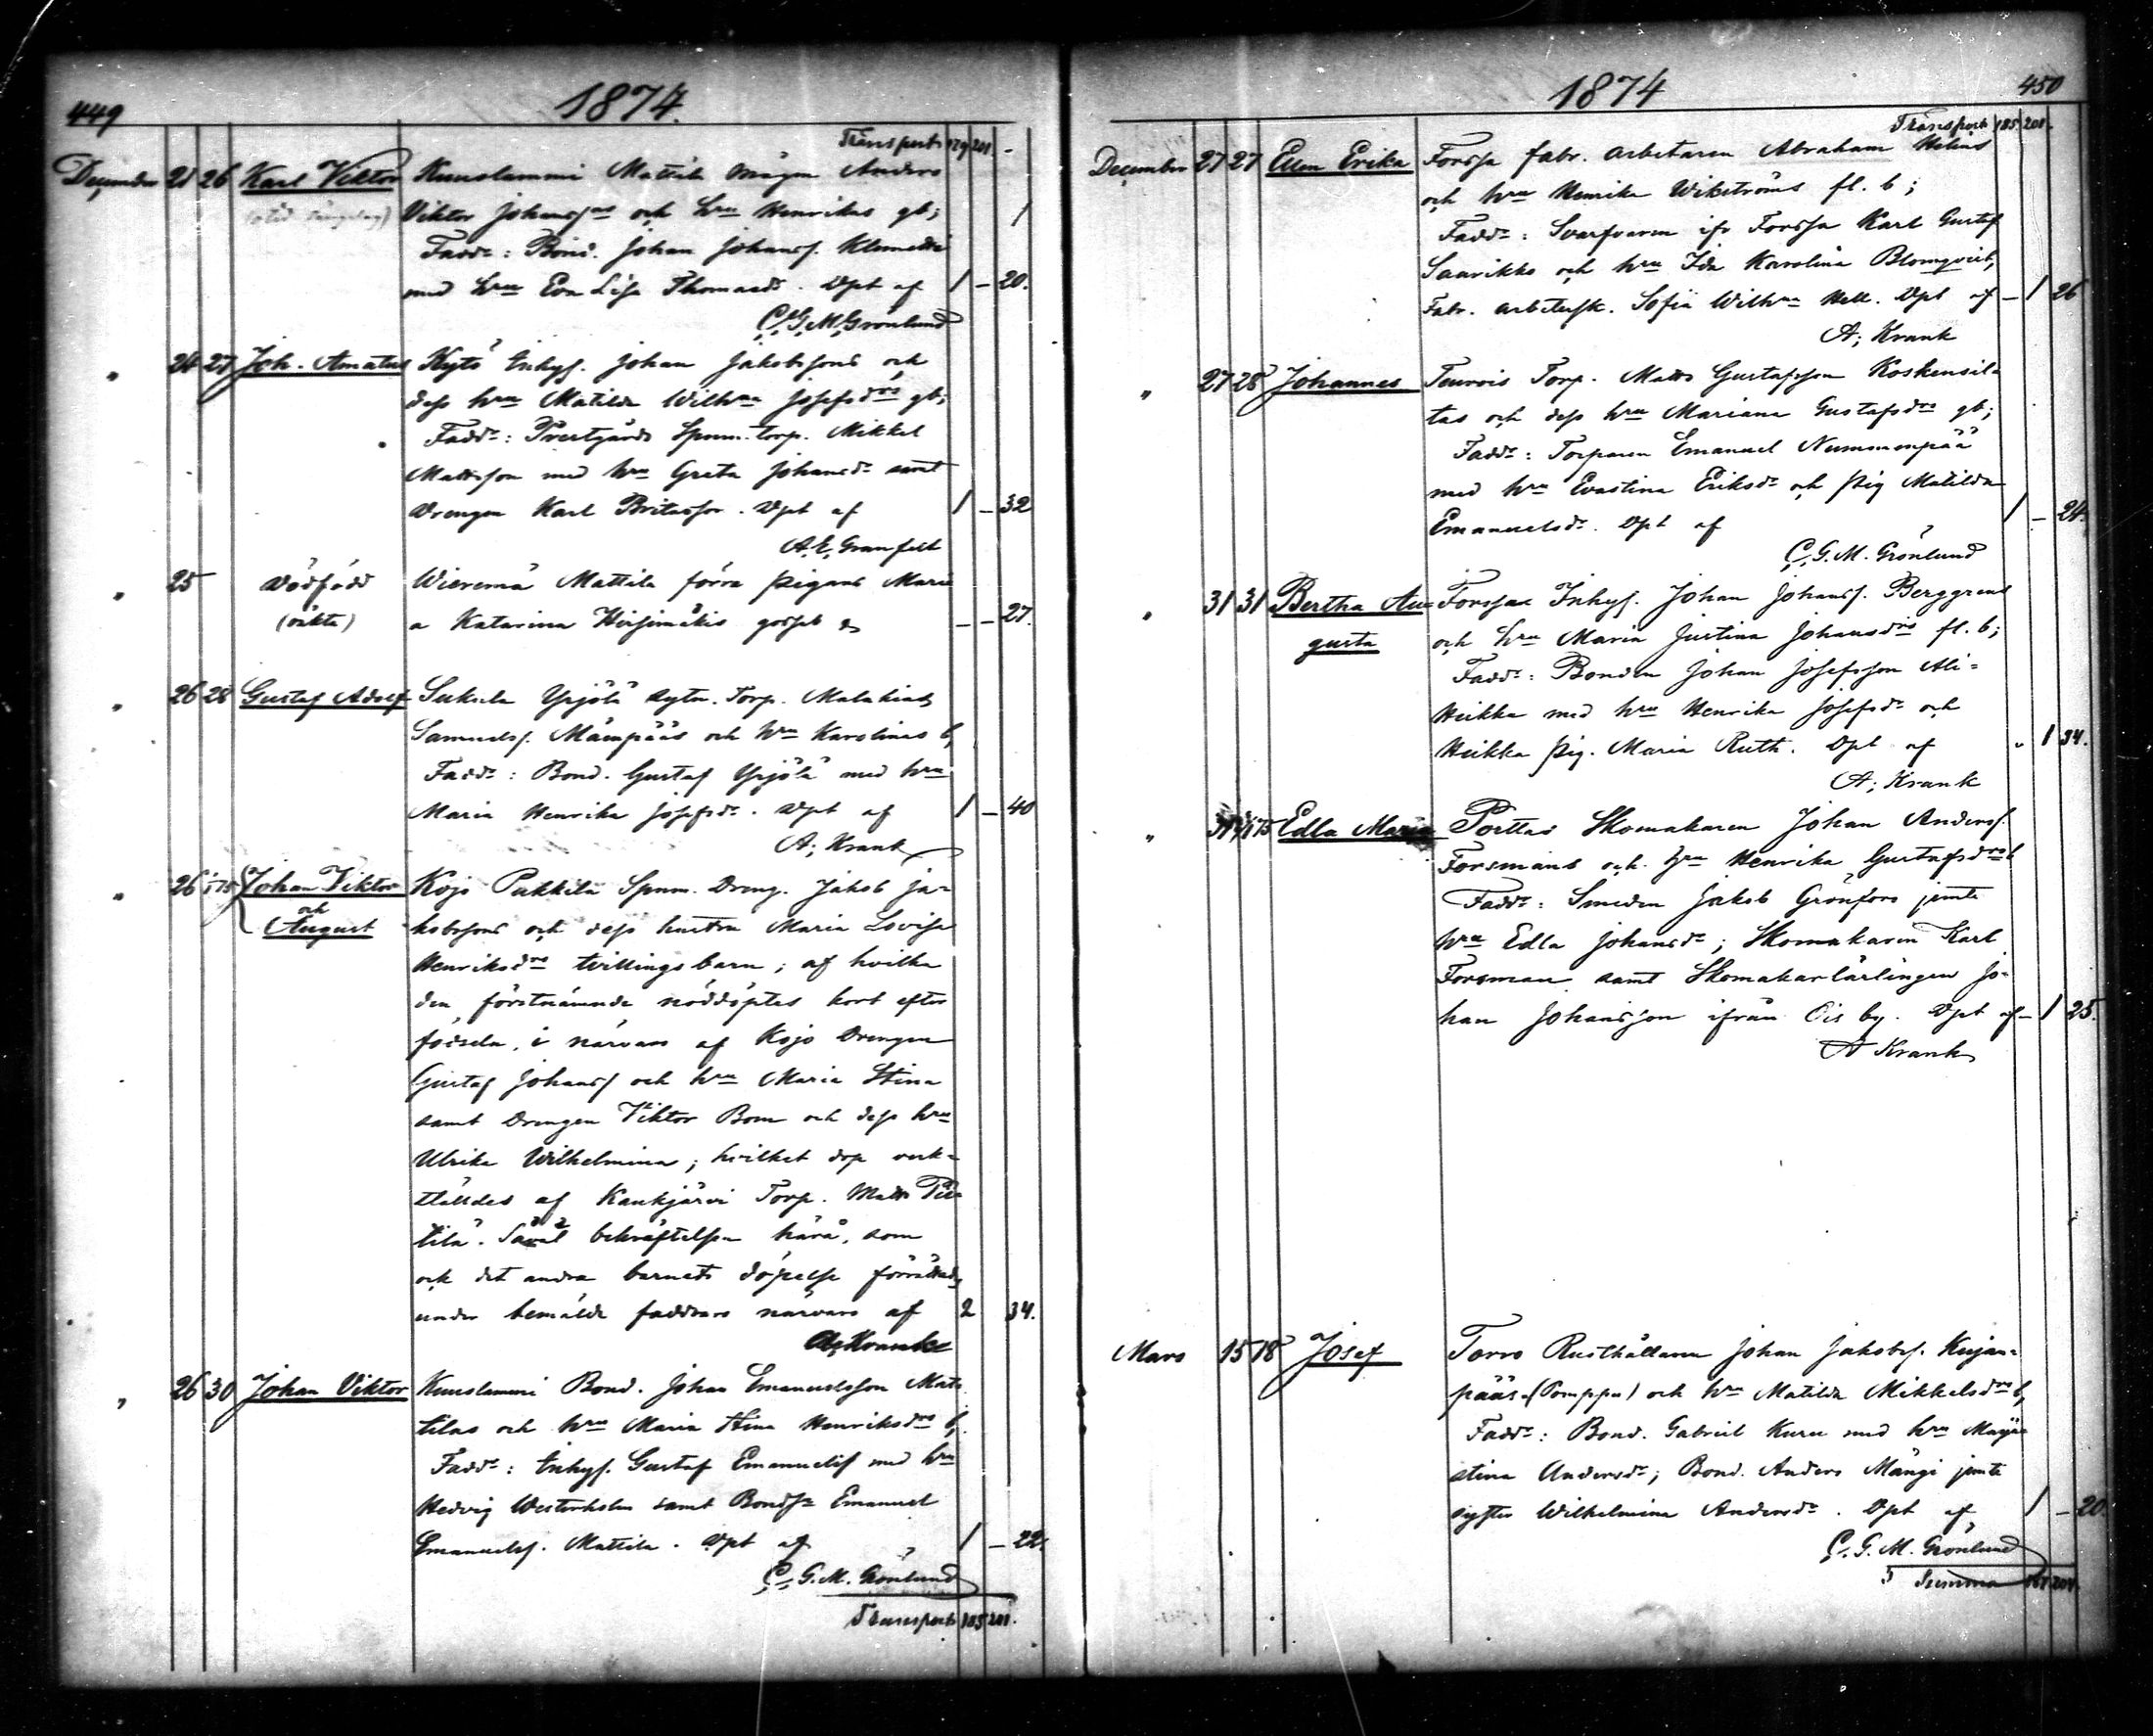 449
1874.
Transport 179 201.
December 21 26 Karl Viktor Kuuslammi Mattila mågen Anders
Viktor Johansson och hru Henrikas gb; 1
Fadd: Bond. Johan Johanss. Klemelä
med hru Eva Lisa Thomasdr. Dpt af 1 – 20.
C. G. M. Grönlund
" 24 27 Joh. Amatus Kytö Inhys. Johan Jakobssons och
dess hru Matilda Wilhna Josefsdrs gb;
Fadd: Tvertgårds Spnm. torp. Mikkel
Mattsson med hru Greta Johansdr samt
Drengen Karl Dpt af 1 – 32
A. E. Granfelt
" 25 Dödfödd Wieremä Mattila förra pigans Mari
(oäkta) a Katarina Hirsimäkis gosse – – 27.
" 26 28 Gustaf Adolf Suksela Yrjölä sytn. Torp. Malakias
Samuelss. Mäenpääs och hru Karolinas b,
Fadd: Bond. Gustaf Yrjölä med hru
Maria Henrika Josefsdr. Dpt af 1 – 40
A; Krank
" 26 1/75 Johan Viktor Kojo Pukkila Spnm. Dreng. Jakob Ja-
och
August kobssons och dess hustru Maria Lovisa
Henriksdrs tvillingsbarn; af hvilka
den förstnämnde nöddöptes kort efter
födseln, i närvaro af Kojo Drengen
Gustaf Johanss och hru Maria Stina
samt Drengen Viktor Bom och dess hru
Ulrika Wilhelmina; hvilket dop verk-
ställdes af Kaukjärvi Torp. Matts
tilä. Såväl bekräftelsen härå, som
ock det andra barnets döpelse förrättades
under bemälde faddrars närvaro af 2 34.
A; Krank
" 26 30 Johan Viktor Kuuslammi Bond. Johan Emanuelsson Mat-
tilas och hru Maria Stina Henriksdrs b,
Fadd: Inhys. Gustaf Emanuelss med hru
Hedvig Westerholm samt Bonds. Emanuel
Emanuelss. Mattila. Dpt af 1 – 22.
C. G. M. Grönlund
Transport 185 201.
1874
450
Transport 185 201.
December 27 27 Ellen Erika Forssa fabr. arbetaren Abraham Helins
och hru Henrika Wikströms fl. b;
Fadd: Svarfvaren ifr Forssa Karl Gustaf
Saarikko och hru Ida Karolina Blomqvist,
Fabr. arbetersk. Sofia Wilhna Hell. Dpt af – 1 26
A; Krank
" 27 28 Johannes Teurois Torp. Matts Gustafsson Koskensil-
tas och dess hru Mariana Gustafsdrs gb;
Fadd: Torparen Emanuel Nummenpää
med hru Evastina Eriksdr och pig Matilda
Emanuelsdr. Dpt af 1 – 24.
C. G. M. Grönlund
" 31 31 Bertha Au= Forssan Inhys. Johan Johanss. Berggrens
gusta och hru Maria Justina Johansdrs fl. b;
Fadd: Bonden Johan Josefsson Ali=
Heikka med hru Henrika Josefsdr och
Heikka pig. Maria Ruth. Dpt af " 1 34.
A; Krank
" 31 1/1 75 Edla Maria Porttas Skomakaren Johan Anderss.
Forsmans och hru Henrika Gustafsdrs b
Fadd: Smeden Jakob Grönfors jemte
hru Edla Johansdr; Skomakaren Karl
Forsman samt Skomakarlärlingen Jo-
han Johansson ifrån Ois by. Dpt af – 1 25.
A Krank
Mars 15 18 Josef Torro Rusthållaren Johan Jakobss. Kujan-
pääs (Pomppu) och hru Matilda Mikkelsdrs b,
Fadd: Bond. Gabriel Kuru med hru Maja
stina Andersdr; Bond. Anders Mängi jemte
syster Wilhelmina Andersdr. Dpt af 1 – 20.
C. G. M. Grönlund
Summa 204.